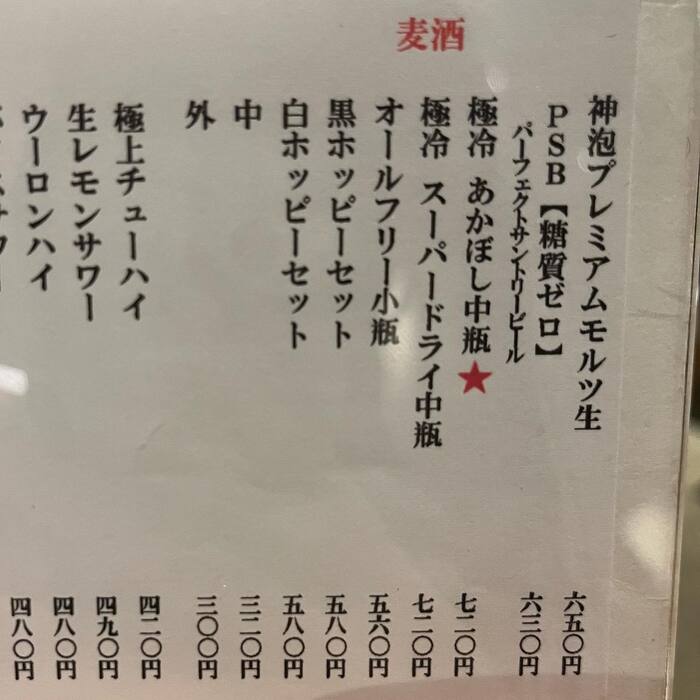 麦酒
神泡プレミアムモルツ生 六五〇円
PSB【糖質ゼロ】 六三〇円
パーフェクトサントリービール
極冷 あかぼし中瓶★ 七二〇円
極冷 スーパードライ中瓶 七二〇円
オールフリー小瓶 五六〇円
黒ホッピーセット 五八〇円
白ホッピーセット 五八〇円
中 三二〇円
外 三〇〇円
極上チューハイ 四二〇円
生レモンサワー 四九〇円
ウーロンハイ 四八〇円
四八〇円